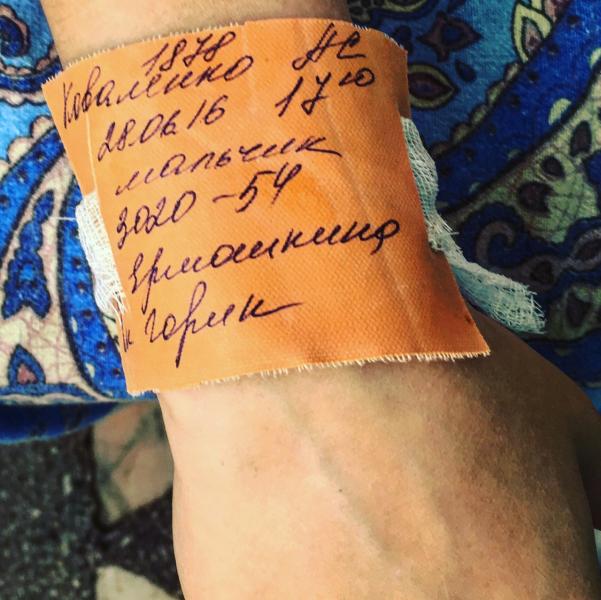 1878
Коваленко АС
28.06.16 17 10
мальчик
3020 - 54
Ермашкина
Горяк